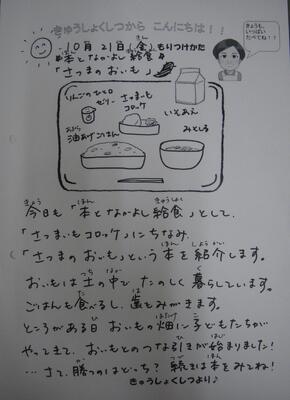 きゅうしょくしつから こんにちは!!
きょうも、
いっぱい
たべてね!!
10月21日(金)もりつけかた
*本となかよし給食*
「さつまのおいも」
りんごのひとロ
ゼリー
さつまいも
コロッケ
いそあえ
油あげごはん
みそしる
今日も「本となかよし給食」として、
「さつまいもコロッケ」にちなみ、
「さつまのおいも」という本を紹介します。
おいもは土の中でたのしく暮らしています。
ごはんも食べるし、歯もみがきます。
ところがある日 おいもの畑に子どもたちが
やってきて、おいもとのつな引きが始まりました!
…さて、勝つのはどっち?続きは本をみてね!
きゅうしょくしつより♪